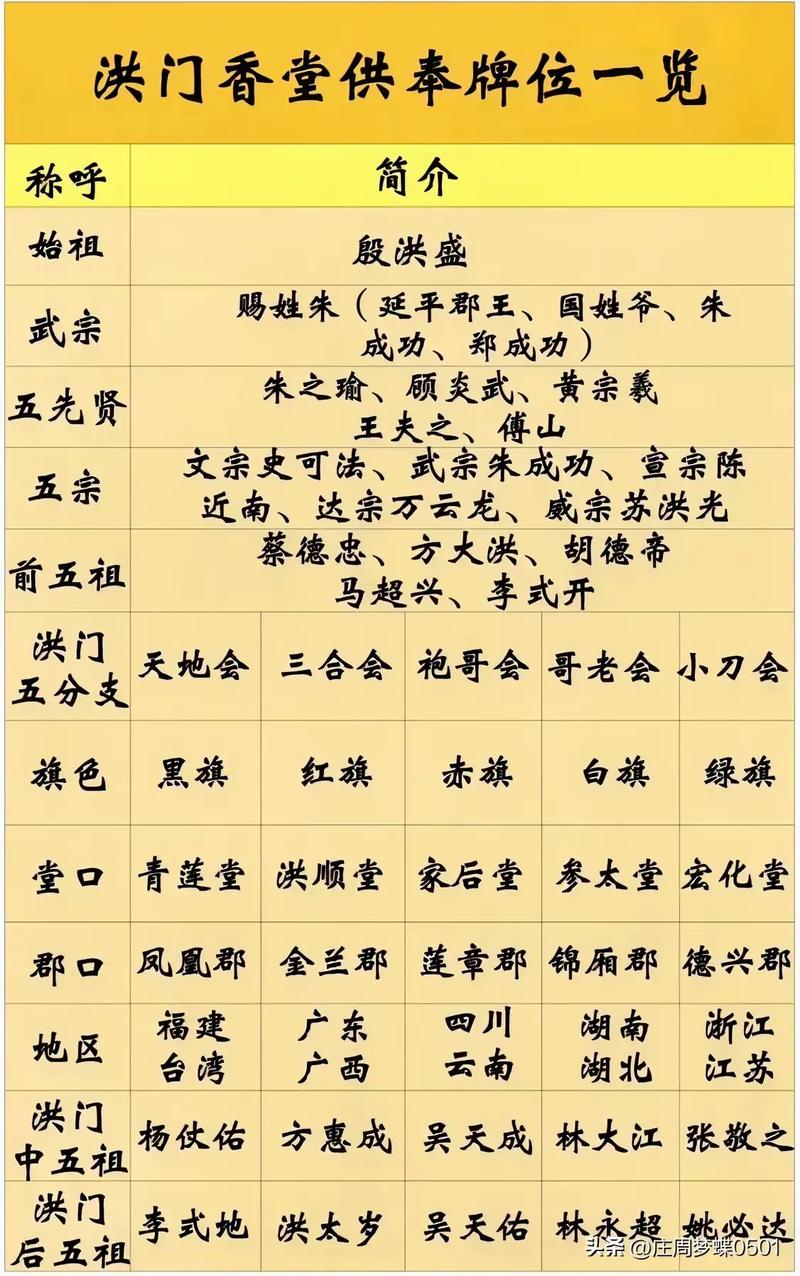 洪门香堂供奉牌位一览
称呼 简介
始祖 殷洪盛
武宗 赐姓朱（延平郡王、国姓爷、朱
成功、郑成功）
五先贤 朱之瑜、顾炎武、黄宗羲
王夫之、傅山
五宗 文宗史可法、武宗朱成功、宣宗陈
近南、达宗万云龙、威宗苏洪光
前五祖 蔡德忠、方大洪、胡德帝
马超兴、李式开
洪门
五分支 天地会 三合会 袍哥会 哥老会 小刀会
旗色 黑旗 红旗 赤旗 白旗 绿旗
堂口 青莲堂 洪顺堂 家后堂 参太堂 宏化堂
郡口 凤凰郡 金兰郡 莲章郡 锦厢郡 德兴郡
地区 福建 广东 四川 湖南 浙江
台湾 广西 云南 湖北 江苏
洪门
中五祖 杨仗佑 方惠成 吴天成 林大江 张敬之
洪门
后五祖 李式地 洪太岁 吴天佑 林永超 姚必达
头条 @庄周梦蝶0501